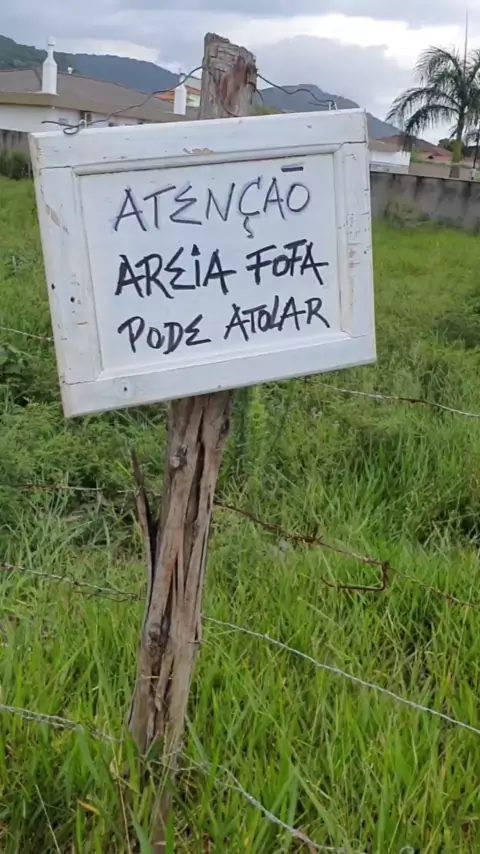 ATENÇÃO
AREIA FOFA
PODE ATOLAR